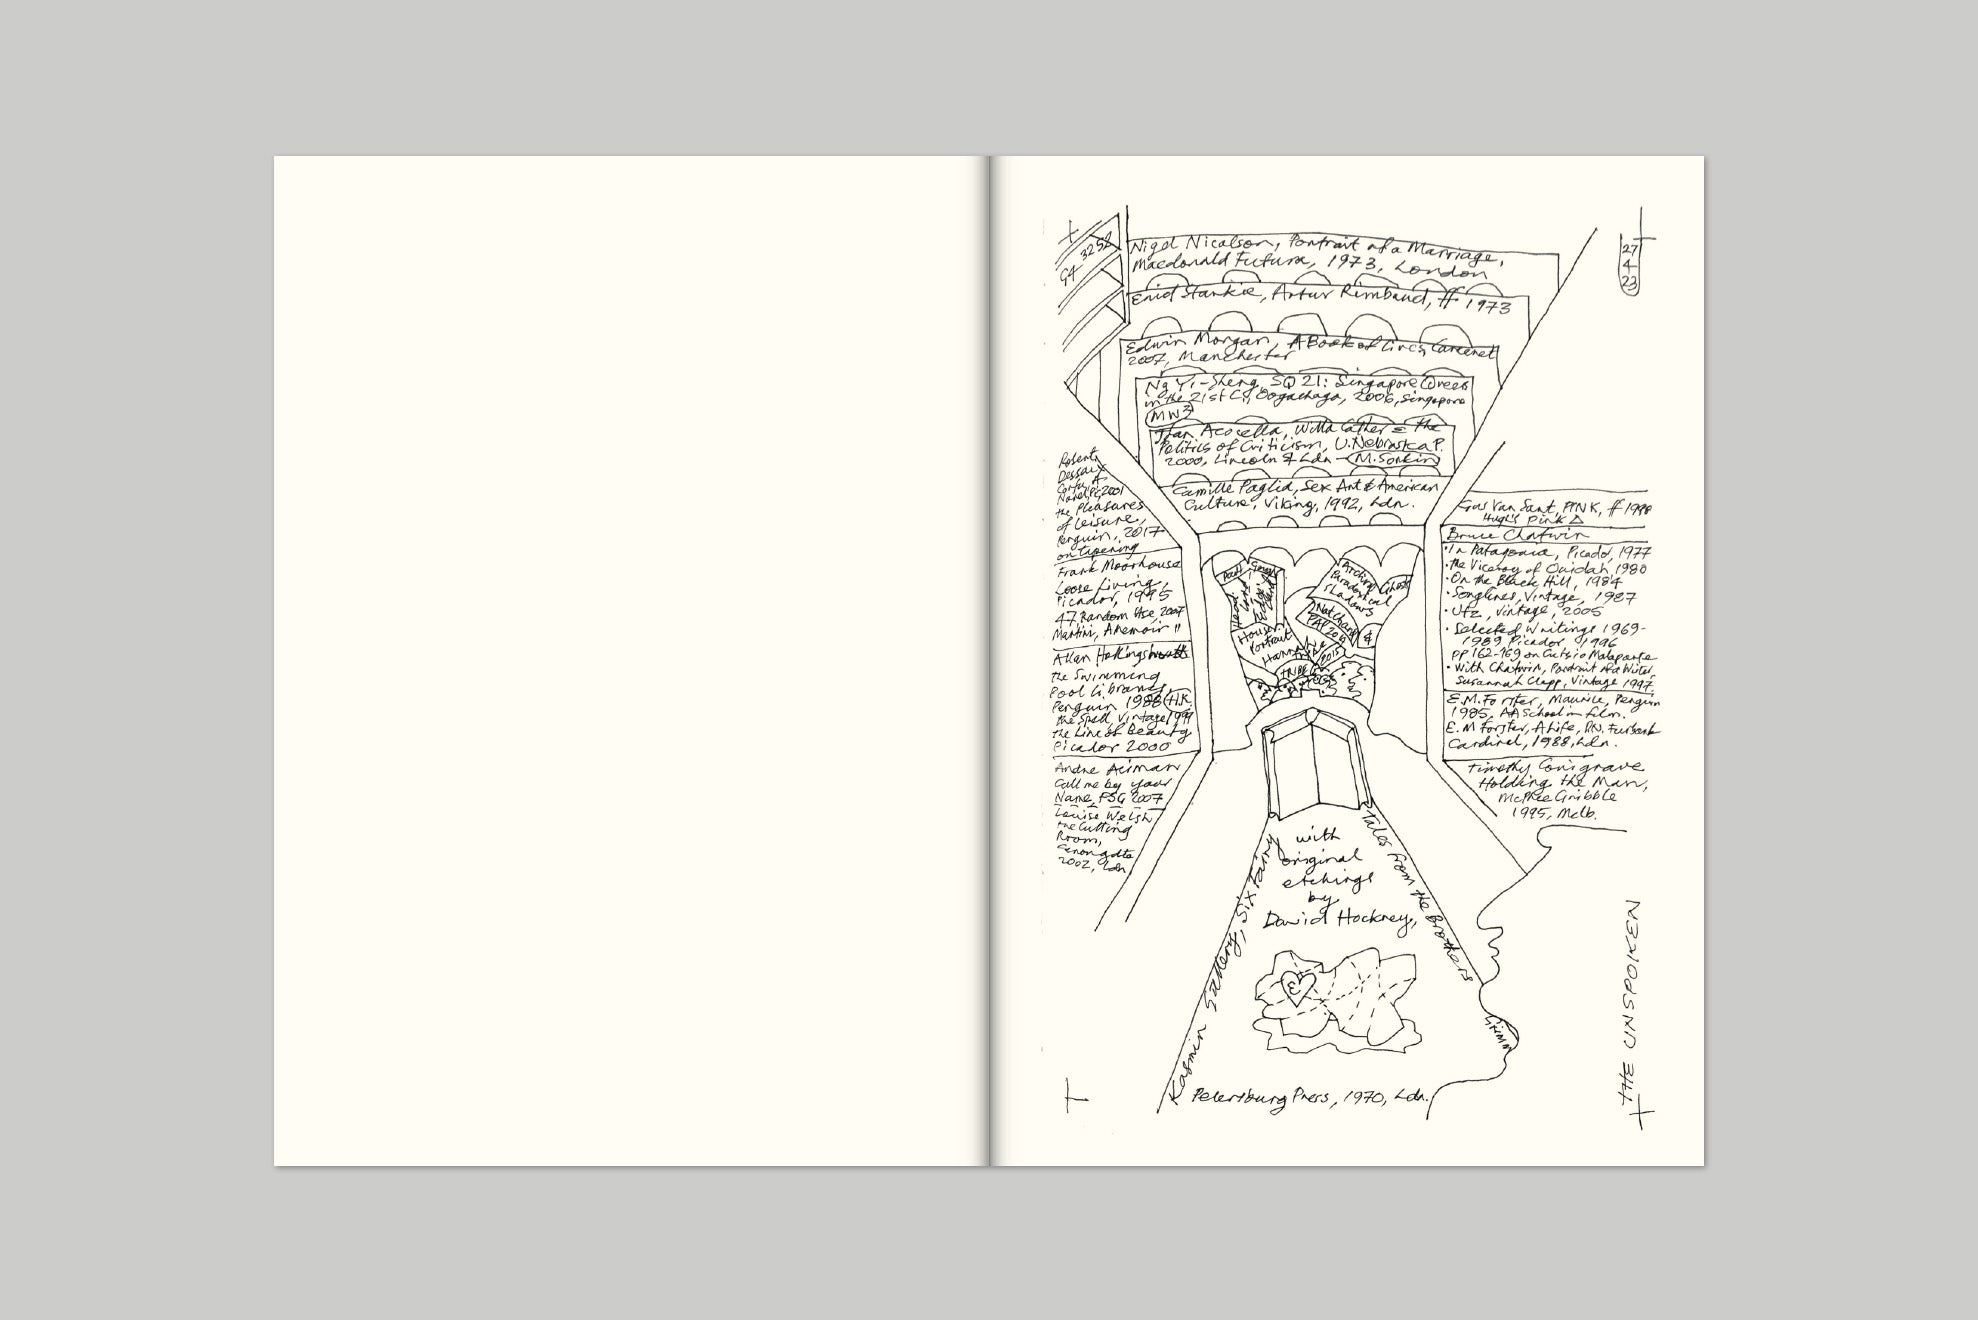 G4 3252
27
4
23
Nigel Nicolson, Portrait of a Marriage,
Macdonald Futura, 1973, London
Enid Starkie, Artur Rimbaud, ff 1973
Edwin Morgan, A Book of Lives, Carcanet
2007, Manchester
Ng Yi-Sheng, SQ 21: Singapore Queers
in the 21st C, Oogachaga, 2006, Singapore
MW3
Joan Acocella, Willa Cather & the
Politics of Criticism, U. Nebraska P.
2000, Lincoln & Ldn - M. Sonkin
Camille Paglia, Sex Art & American
Culture, Viking, 1992, Ldn.
Robert
Dessaix
Corfu, A
Novel, 2001
the Pleasures
of Leisure,
Penguin, 2017
Frank Moorhouse
Loose Living,
Picador, 1995
Martini, A Memoir "
the Swimming
Pool Library
Penguin 1988 H.K.
the Spell, Vintage
the Line of Beauty
Picador 2000
Call me by your
Name, FSG 2007
Louise Welsh
the Cutting
Room,
Canongate
2002, Ldn
Gus Van Sant, PINK, ff
Hugh's Pink
Bruce Chatwin
· In Patagonia, Picador, 1977
· the Viceroy of Ouidah 1980
· On the Black Hill, 1984
· Songlines, Vintage, 1987
· Utz, Vintage, 2005
· Selected Writings 1969-
1989 Picador, 1996
pp 162-169 on Curtsio Malaparte
· With Chatwin, Portrait of a Writer,
Susannah Clapp, Vintage 1997.
E.M. Forster, Maurice, Penguin
1985, AA School in film.
E.M Forster, A Life, P.N. Furbank
Cardinal, 1988, Ldn.
Timothy Conigrave
Holding the Man,
McPhee Gribble
1995, Melb.
House
Portrait
TRIBE
2015
&
Kasmin Gallery, Six Fairy
Tales from the Brothers
Grimm
with
original
etchings
by
David Hockney,
Petersburg Press, 1970, Ldn.
THE UNSPOKEN